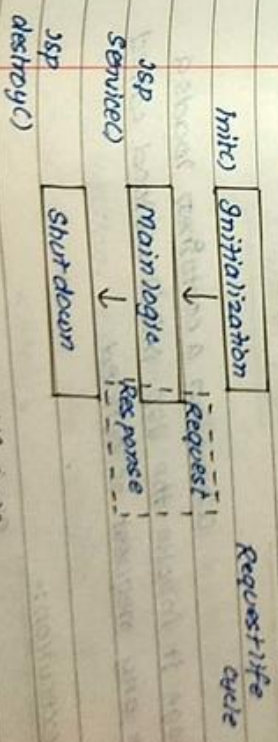 Request life
cycle
Init()
Initialization
Request
JSP
Service()
Main logic
Response
JSP
destroy()
Shutdown